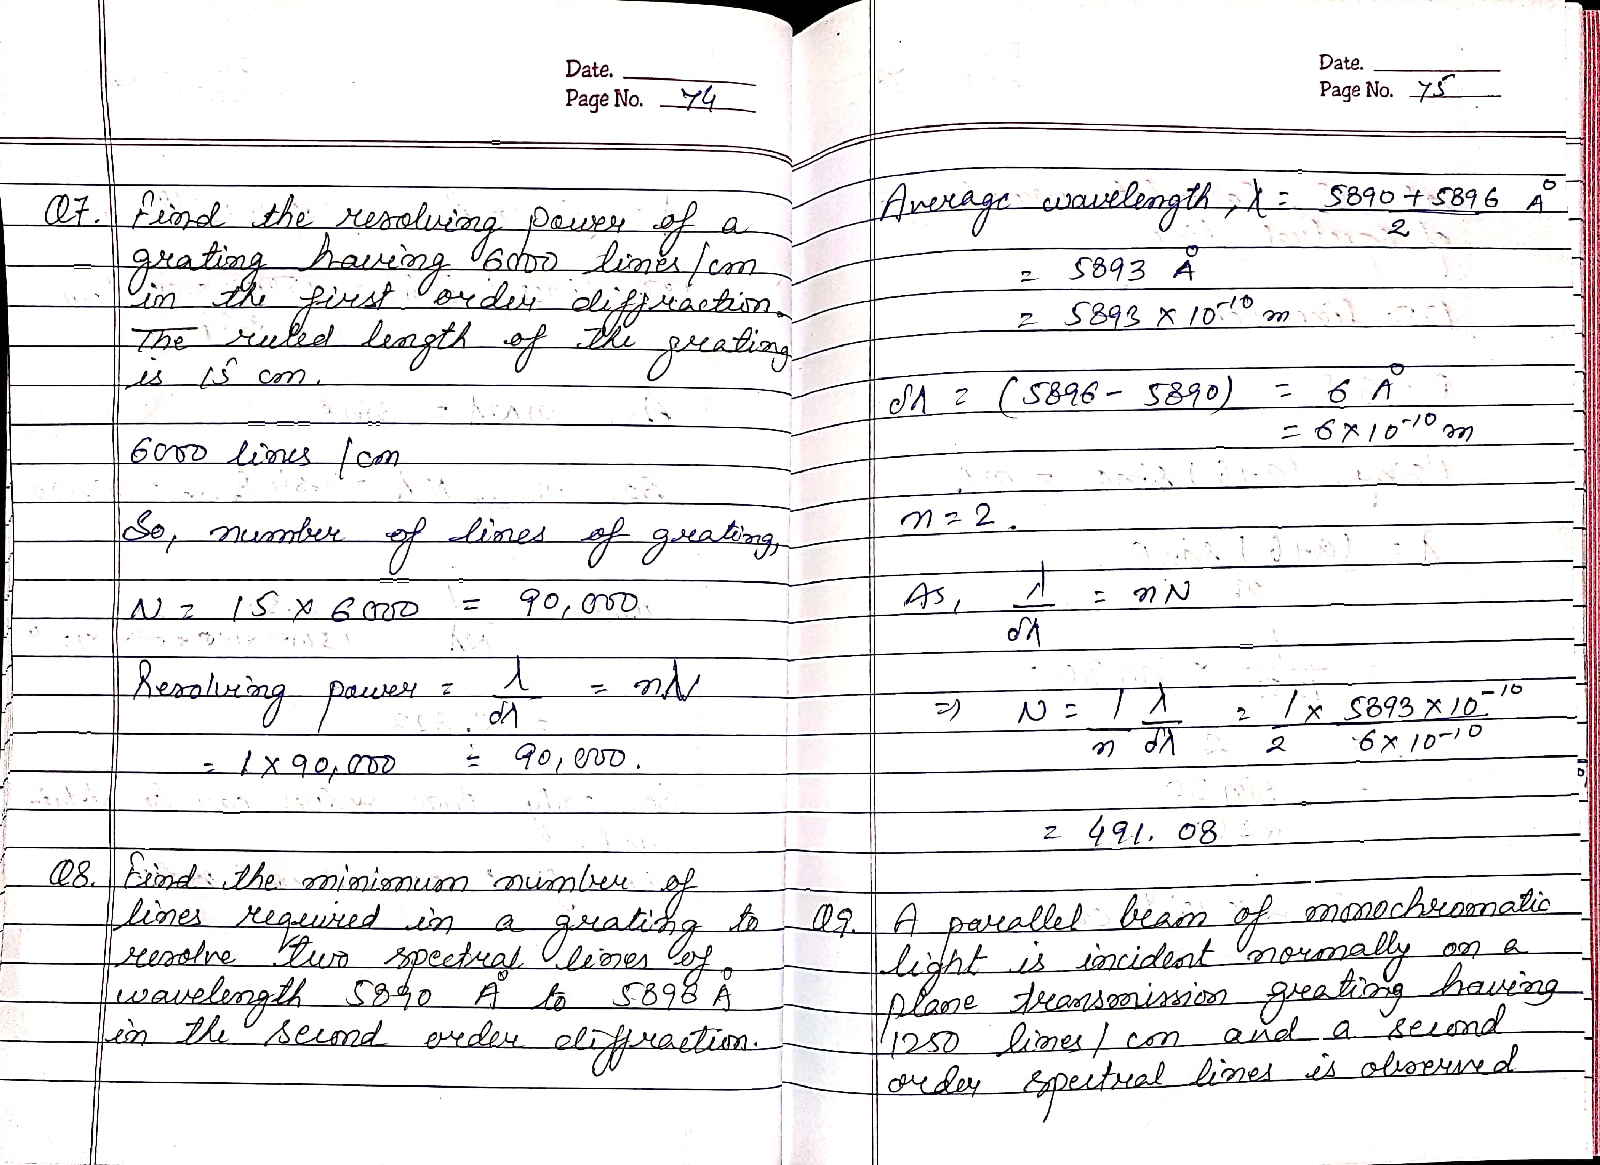 Date.
Page No. 74
Q7. Find the resolving power of a
grating having 6000 lines/cm
in the first order diffraction.
The ruled length of the grating
is 15 cm.
6000 lines /cm
So, number of lines of grating,
N = 15 × 6000 = 90,000.
Resolving power = λ/dλ = nN
= 1 × 90,000 = 90,000.
Q8. Find the minimum number of
lines required in a grating to
resolve two spectral lines of
wavelength 5890 Å to 5896 Å
in the second order diffraction.
Date.
Page No. 75
Average wavelength, λ = 5890 + 5896 Å
2
= 5893 Å
= 5893 × 10⁻¹⁰ m
dλ = (5896 - 5890) = 6 Å
= 6 × 10⁻¹⁰ m
n = 2.
As, λ/dλ = nN
=) N = 1/n λ/dλ = 1/2 × 5893 × 10⁻¹⁰/6 × 10⁻¹⁰
= 491.08
Q9. A parallel beam of monochromatic
light is incident normally on a
plane transmission greating having
1250 lines/cm and a second
order spectral lines is observed